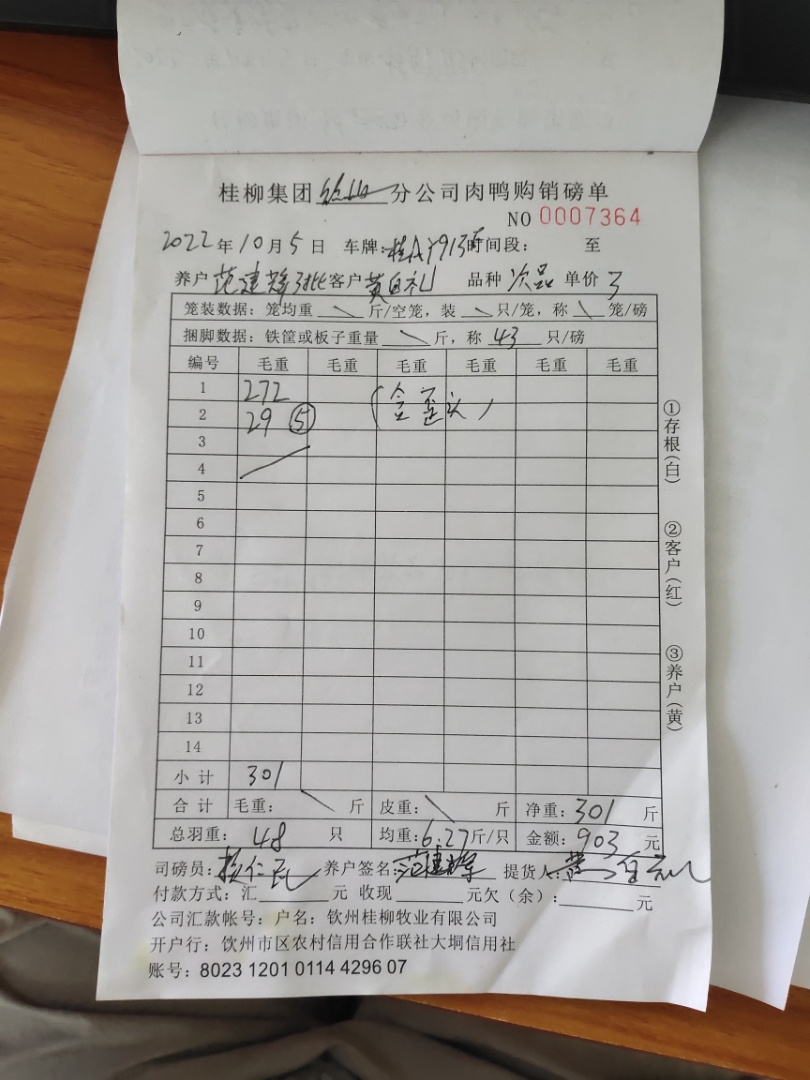 桂柳集团 分公司肉鸭购销磅单
NO 0007364
2022年10月5日 车牌: 时间段: 至
养户 范建 批客户 黄自礼 品种 次品 单价 3
笼装数据: 笼均重 \ 斤/空笼, 装 \ 只/笼, 称 \ 笼/磅
捆脚数据: 铁筐或板子重量 \ 斤, 称 43 只/磅
编号 毛重 毛重 毛重 毛重 毛重 毛重
1 272
2 29 ⑤ (含歪头)
3
4
5
6
7
8
9
10
11
12
13
14
小计 301
合计 毛重: \ 斤 皮重: \ 斤 净重: 301 斤
总羽重: 48 只 均重: 6.27斤/只 金额: 903 元
司磅员: 杨仁 养户签名: 范建 提货人: 黄自礼
付款方式: 汇 元 收现 元欠(余): 元
公司汇款帐号: 户名: 钦州桂柳牧业有限公司
开户行: 钦州市区农村信用合作联社大垌信用社
账号: 8023 1201 0114 4296 07
①存根(白)
②客户(红)
③养户(黄)